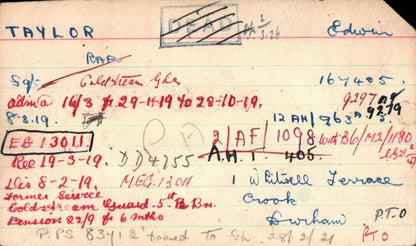 TAYLOR Edwin
DEAD
RAF
Sgt Coldstream Gds 167405.
adm'd 16/3 fr 29-11-19 to 28-10-19. 9297
8-3-19. 12 AH/963 9279
EG 13011. 2/AF/1098 with B6/M2/1180
Rec 19-3-19. DD4755 A.H.T. 405.
Dis 8-2-19. MEG.13011 1 Whitwell Terrace
Former Service Crook
Coldstream Guard. 5th Re Bn. Durham P.T.O
Pension 22/9 fr 6 mths
P.P.S. 83412 passed to Gh. 28/2/21 PTO